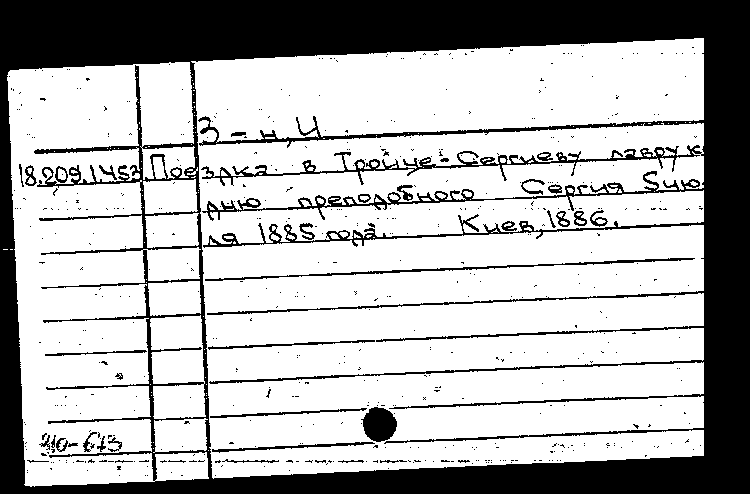 З-н, И
18.209.1.453. Поездка в Тройце-Сергиеву лавру к
дню преподобного Сергия 5 ию-
ля 1885 года. Киев, 1886.
310-673